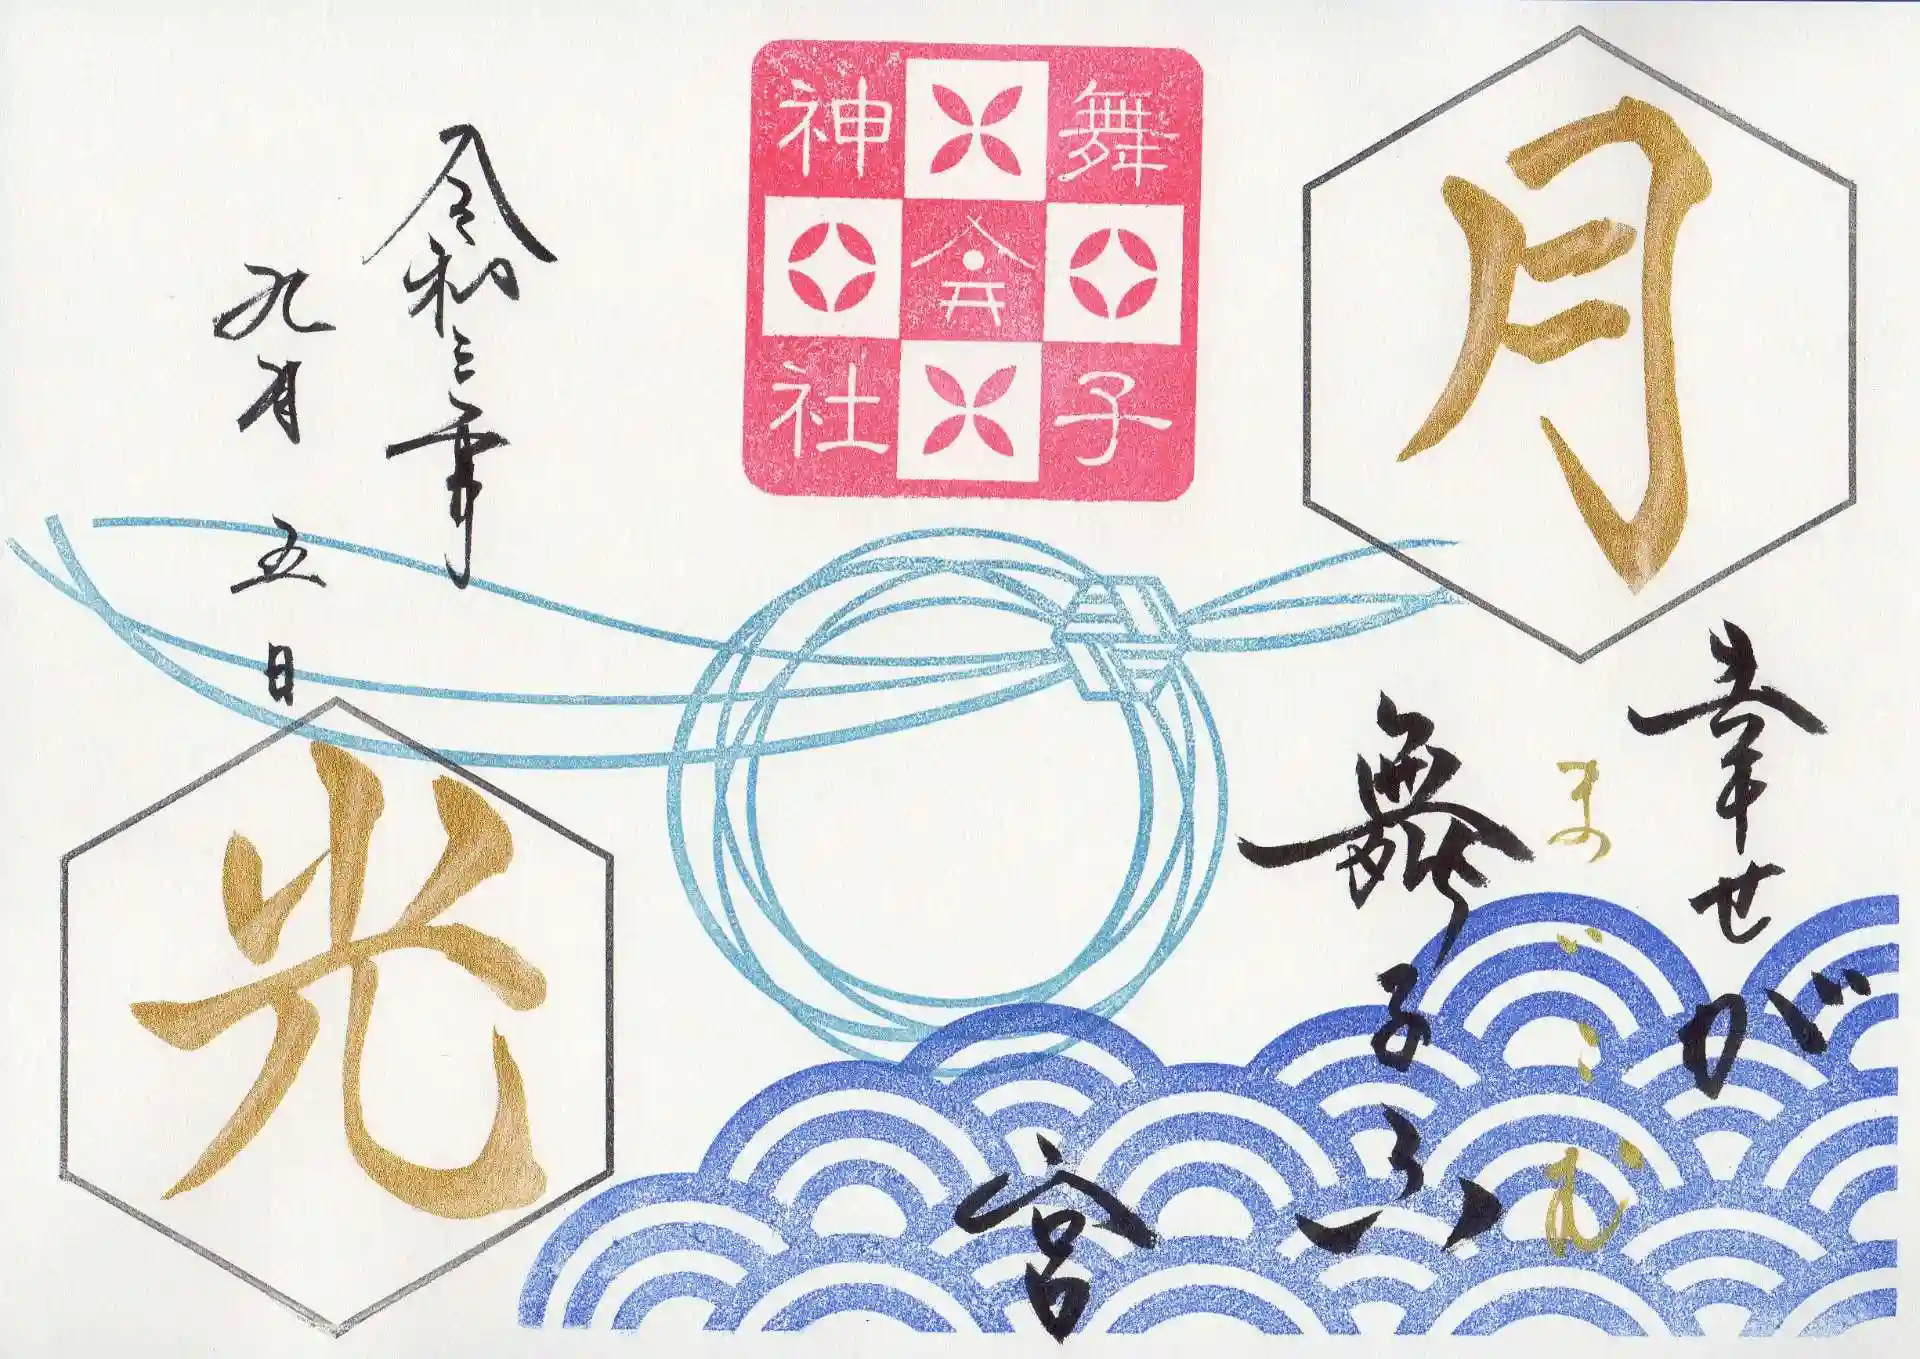 月
幸せが
まいこむ
舞子六
宮
舞子
神社
令和三年
九月五日
光